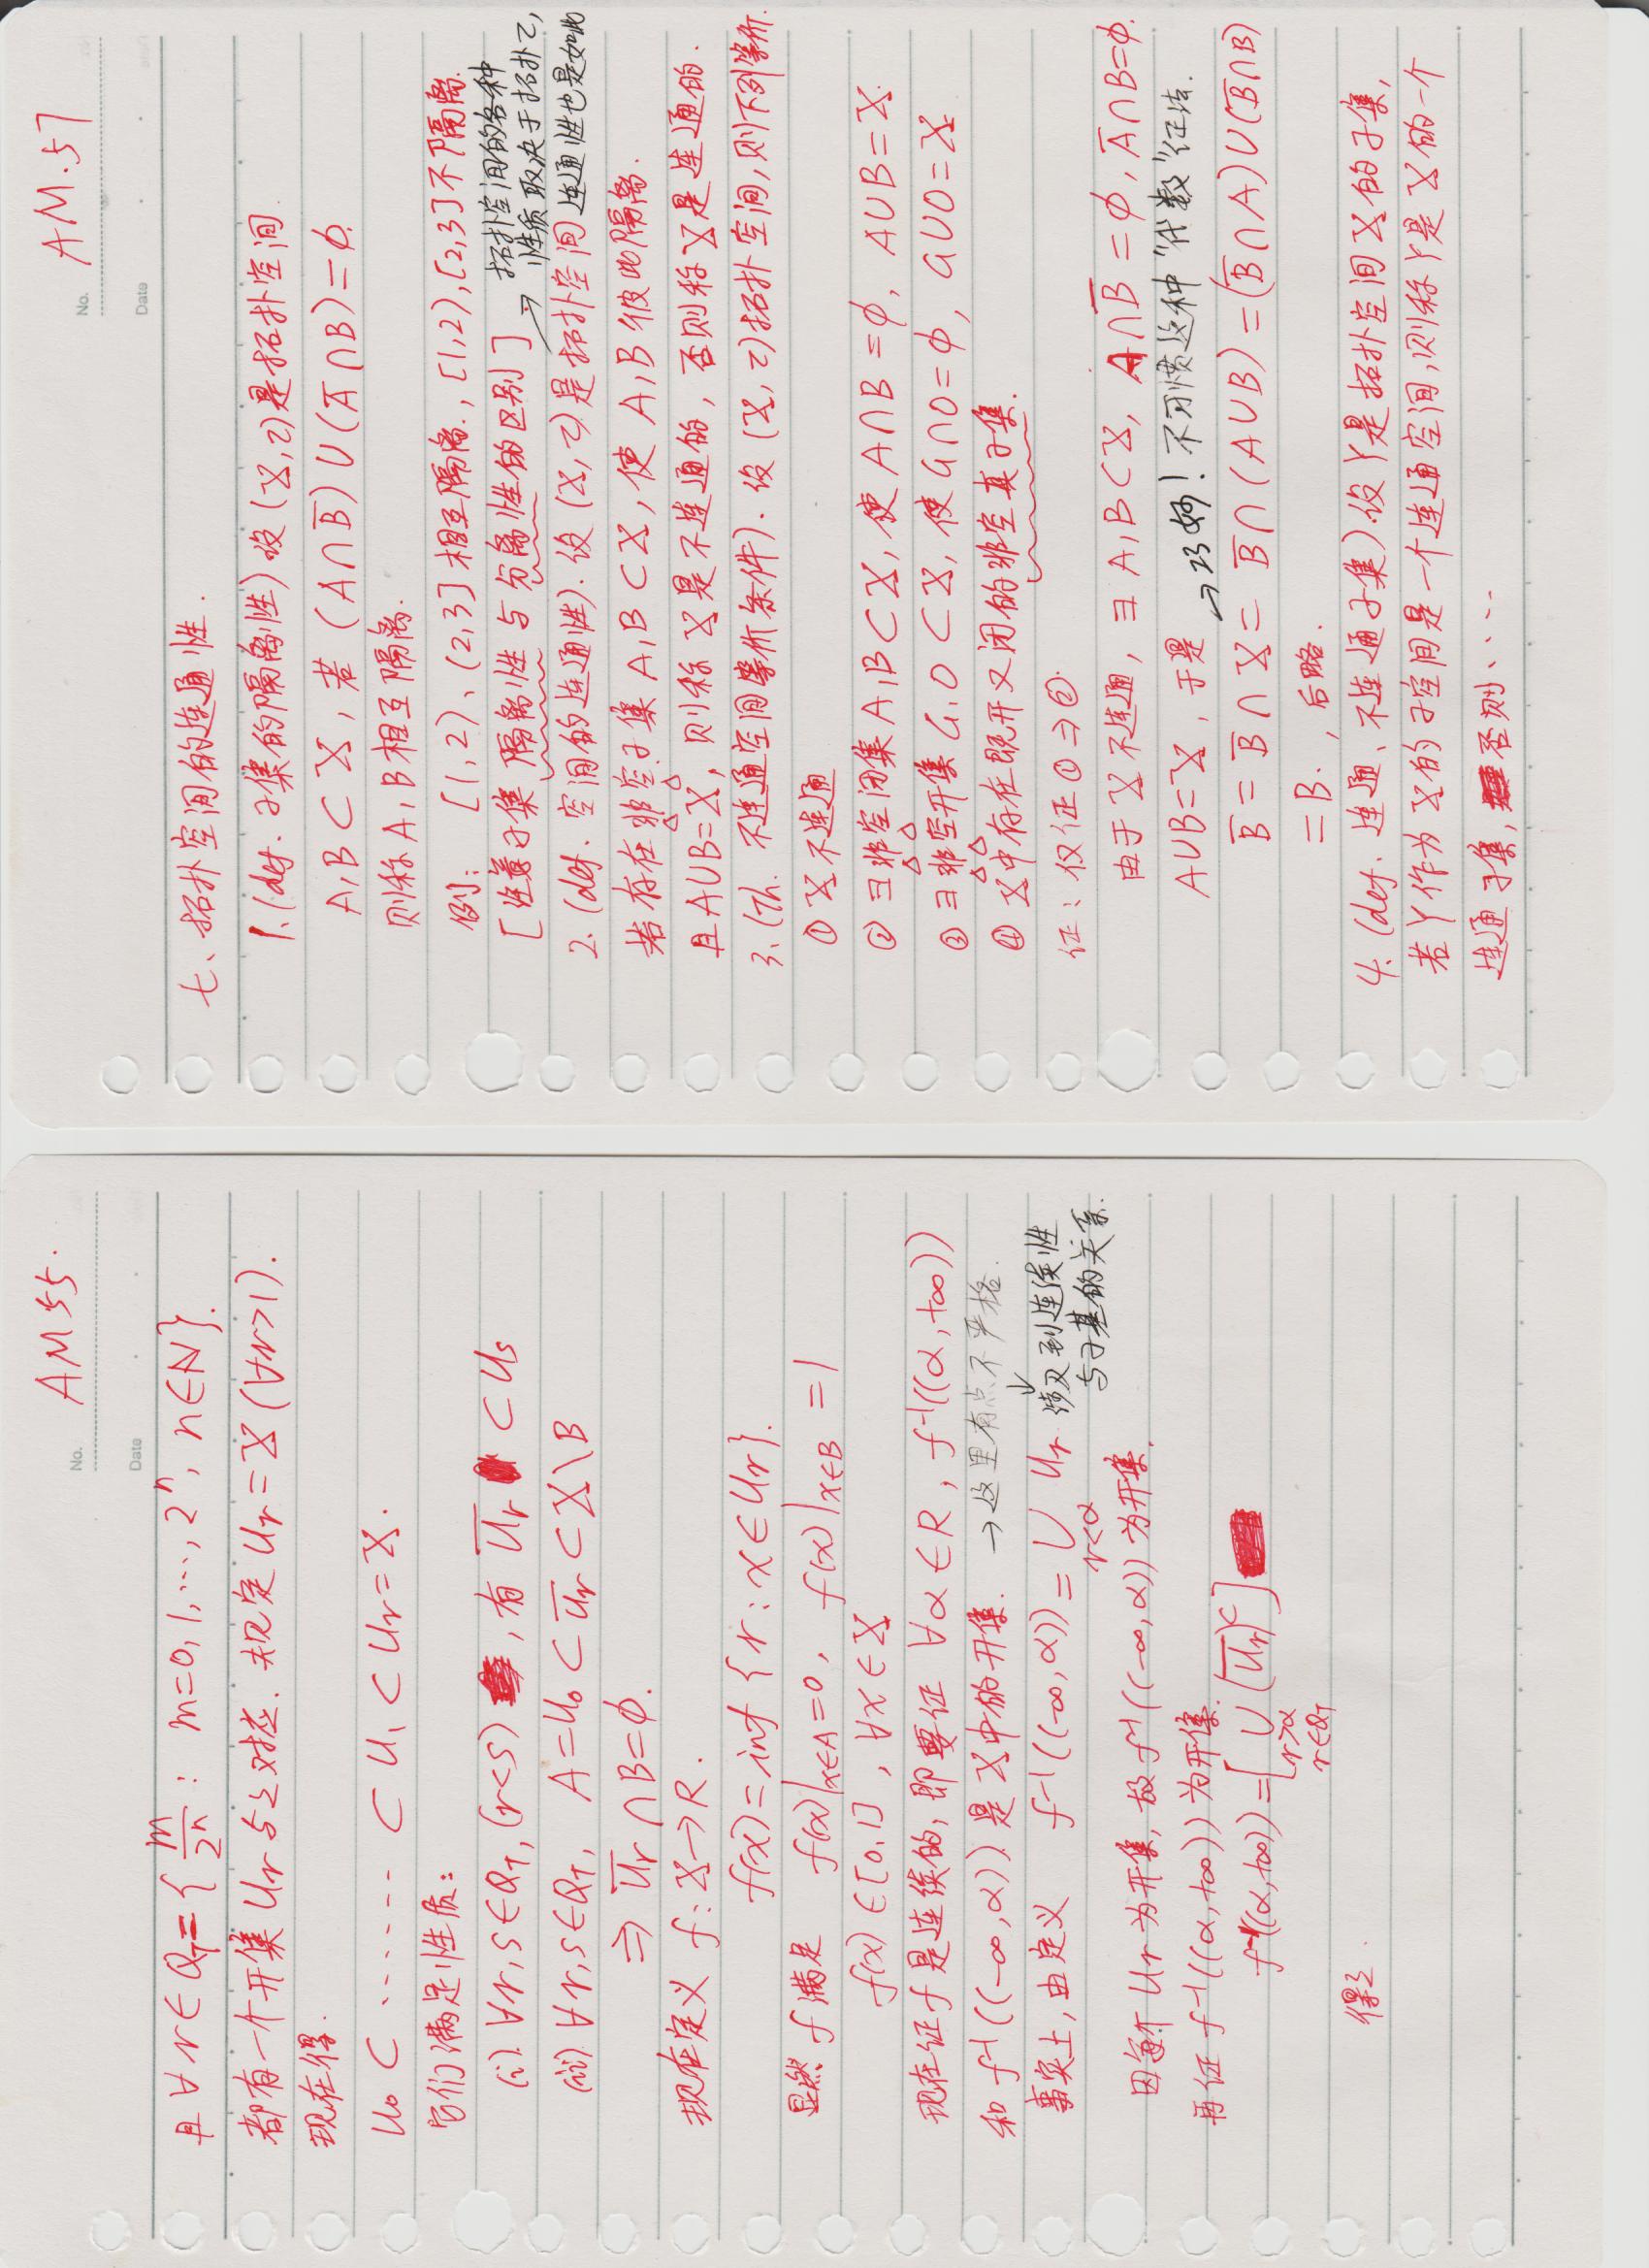 No. AM 55.
Date
且 ∀ r ∈ Q_T = { m/2^n : m=0, 1, ..., 2^n, n∈N }.
都有一个开集 U_r 与之对应. 规定 U_r = X (∀r>1).
现在得.
U_0 ⊂ ······ ⊂ U_1 ⊂ U_r = X.
它们满足性质:
(i). ∀r, s ∈ Q_T, (r<s) , 有 \overline{U_r} ⊂ U_s
(ii) ∀r, s ∈ Q_T, A = U_0 ⊂ \overline{U_r} ⊂ X \ B
⇒ \overline{U_r} ∩ B = ∅.
现在定义 f: X → R.
f(x) = inf { r : x ∈ U_r }.
显然 f 满足 f(x)|_{x∈A} = 0, f(x)|_{x∈B} = 1
f(x) ∈ [0,1] , ∀x ∈ X
现在证 f 是连续的, 即要证 ∀α ∈ R, f^{-1}((α, +∞))
和 f^{-1}((-∞, α)) 是 X 中的开集. → 这里有点不严格.
↓
事实上, 由定义 f^{-1}((-∞, α)) = ∪_{r<α} U_r 涉及到连续性
与子基的关系.
因每个 U_r 为开集, 故 f^{-1}((-∞, α)) 为开集.
再证 f^{-1}((α, +∞)) 为开集.
f^{-1}((α, +∞)) = [ ∪_{r>α r∈Q_T} (\overline{U_r})^c ]
得之.
No. AM. 57
Date
七、拓扑空间的连通性.
1. (def. 子集的隔离性) 设 (X, τ) 是拓扑空间.
A, B ⊂ X, 若 (A ∩ \overline{B}) ∪ (\overline{A} ∩ B) = ∅.
则称 A, B 相互隔离.
例: [1,2)、(2,3] 相互隔离., [1,2), [2,3] 不隔离.
[注意子集 隔离性 与 分离性的区别] → 拓扑空间的各种
性质取决于拓扑 τ,
连通性也是如此
2. (def. 空间的连通性). 设 (X, τ) 是拓扑空间
若存在非空子集 A, B ⊂ X, 使 A, B 彼此隔离.
且 A∪B = X, 则称 X 是不连通的, 否则称 X 是连通的.
3. (Th. 不连通空间等价条件). 设 (X, τ) 拓扑空间, 则下列等价.
① X 不连通
② ∃ 非空闭集 A, B ⊂ X, 使 A∩B = ∅, A∪B = X.
③ ∃ 非空开集 G, O ⊂ X, 使 G∩O = ∅, G∪O = X
④ X 中存在既开又闭的非空真子集.
证: 仅证 ① ⇒ ②.
由于 X 不连通, ∃ A, B ⊂ X, A∩\overline{B} = ∅, \overline{A}∩B = ∅.
A∪B = X, 于是 → 巧妙! 不习惯这种 "代数" 证法.
\overline{B} = \overline{B} ∩ X = \overline{B} ∩ (A∪B) = (\overline{B} ∩ A) ∪ (\overline{B} ∩ B)
= B. , 后略.
4. (def. 连通、不连通子集). 设 Y 是拓扑空间 X 的子集,
若 Y 作为 X 的子空间是一个连通空间, 则称 Y 是 X 的一个
连通子集, 否则····